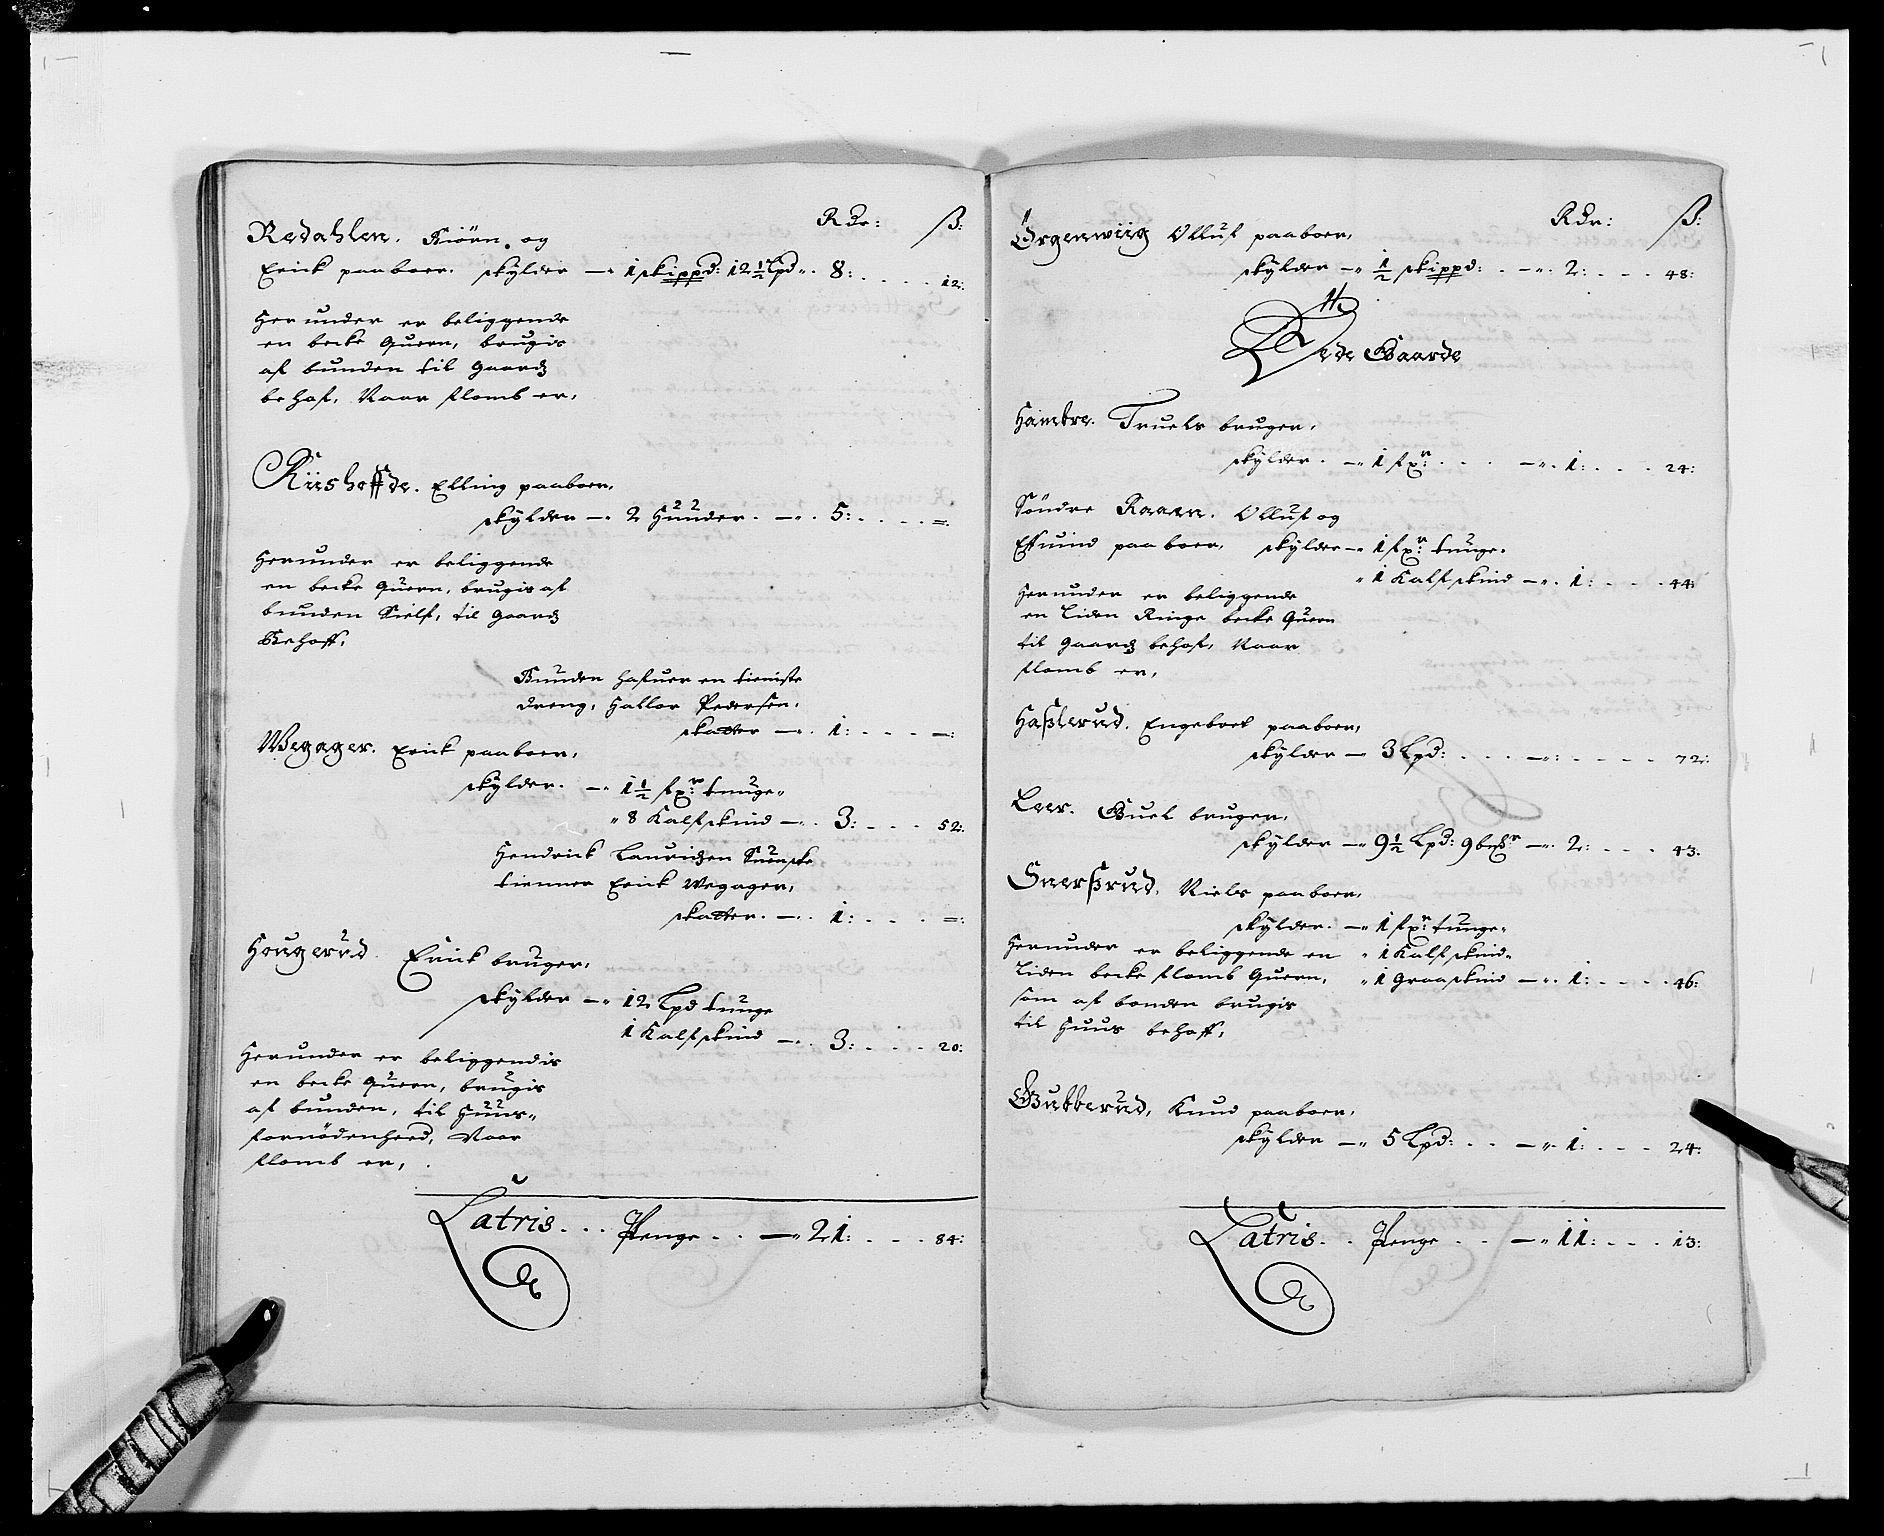 Rdr: ß:
Redahlen. Biörn og
Erick paaboer. skylder — 1 skippd: 12½ Lpd. 8: . . . . 12:
Her under er beliggende
en becke Quern, brugis
af bunden til Gaardz
behof, Naar flomb er,
Riishoffde. Elling paaboer,
skylder — 2 Hunder. — . 5: . . . . =.
Herunder er beliggende
en becke Quern, brugis af
bunden Sielf, til Gaardz
Behoff,
Bunden hafuer en tieniste
dreng, Hallor Pedersen,
skatter — . 1: . . . . —:
Wegager. Erick paaboer,
skylder. — 1½ fxr: tunge.
8 Kalfskind — . 3: . . . 52:
Hendrick Lauridzen Suenske
tienner Erick Wegager,
skatter. — . 1: . . . =.
Hougerud. Erick bruger,
skylder — 12 Lpd tunge
1 Kalfskind — . 3: . . . . 20:
Herunder er beliggendis
en becke Quern, brugis
af bunden, til Huus-
fornödenheed, Naar
flomb er,
Latris . . . Penge . . — 21: . . . . 84:
Rdr: ß:
Örgenwiig Olluf paaboer,
skylder — ½ skippd: . . — . 2: . . . 48:
Öde Gaarde
Hambre. Truels bruger,
skylder. — 1 fxr: . . . — . 1: . . . 24:
Söndre Raaen. Olluf og
Essuind paaboer, skylder — 1 fxr: tunge.
1 Kalfskind — . 1: . . . . 44:
Herunder er beliggende
en Liden Ringe becke Quern
til Gaardz behof, Naar
flomb er,
Haßlerud. Engebret paaboer,
skylder — 3 Lpd: . . . — : . . . . 72:
Leer. Guel bruger,
skylder — 9½ Lpd: 9 beßr — . 2: . . . 43.
Snerßrud, Niels paaboer,
skylder. — 1 fxr: tunge.
Herunder er beliggende en 1 Kalfskind.
Liden becke flomb Quern, 1 Graaskind — . 1: . . . . 46:
som af bonden brugis
til Huus behoff,
Gubberud, Knud paaboer,
skylder — 5 Lpd: . . — . 1: . . . 24:
Latris . . Penge . . — 11: . . . 13: